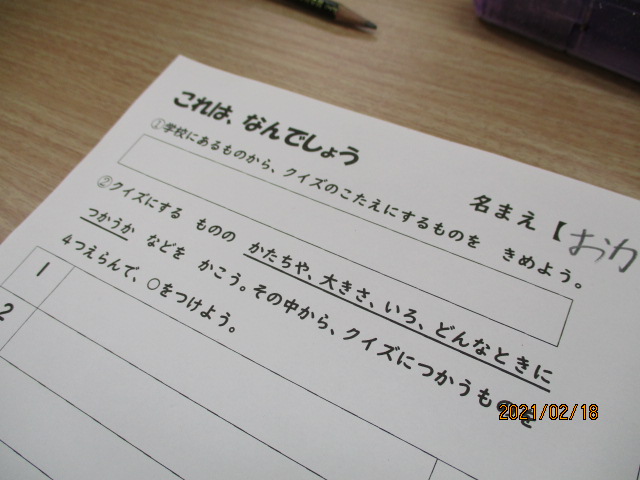 これは、なんでしょう
名まえ【おか
①学校にあるものから、クイズのこたえにするものを きめよう。
②クイズにする ものの かたちや、大きさ、いろ、どんなときに
つかうか などを かこう。その中から、クイズにつかうものを
4つえらんで、○をつけよう。
1
2
2021/02/18